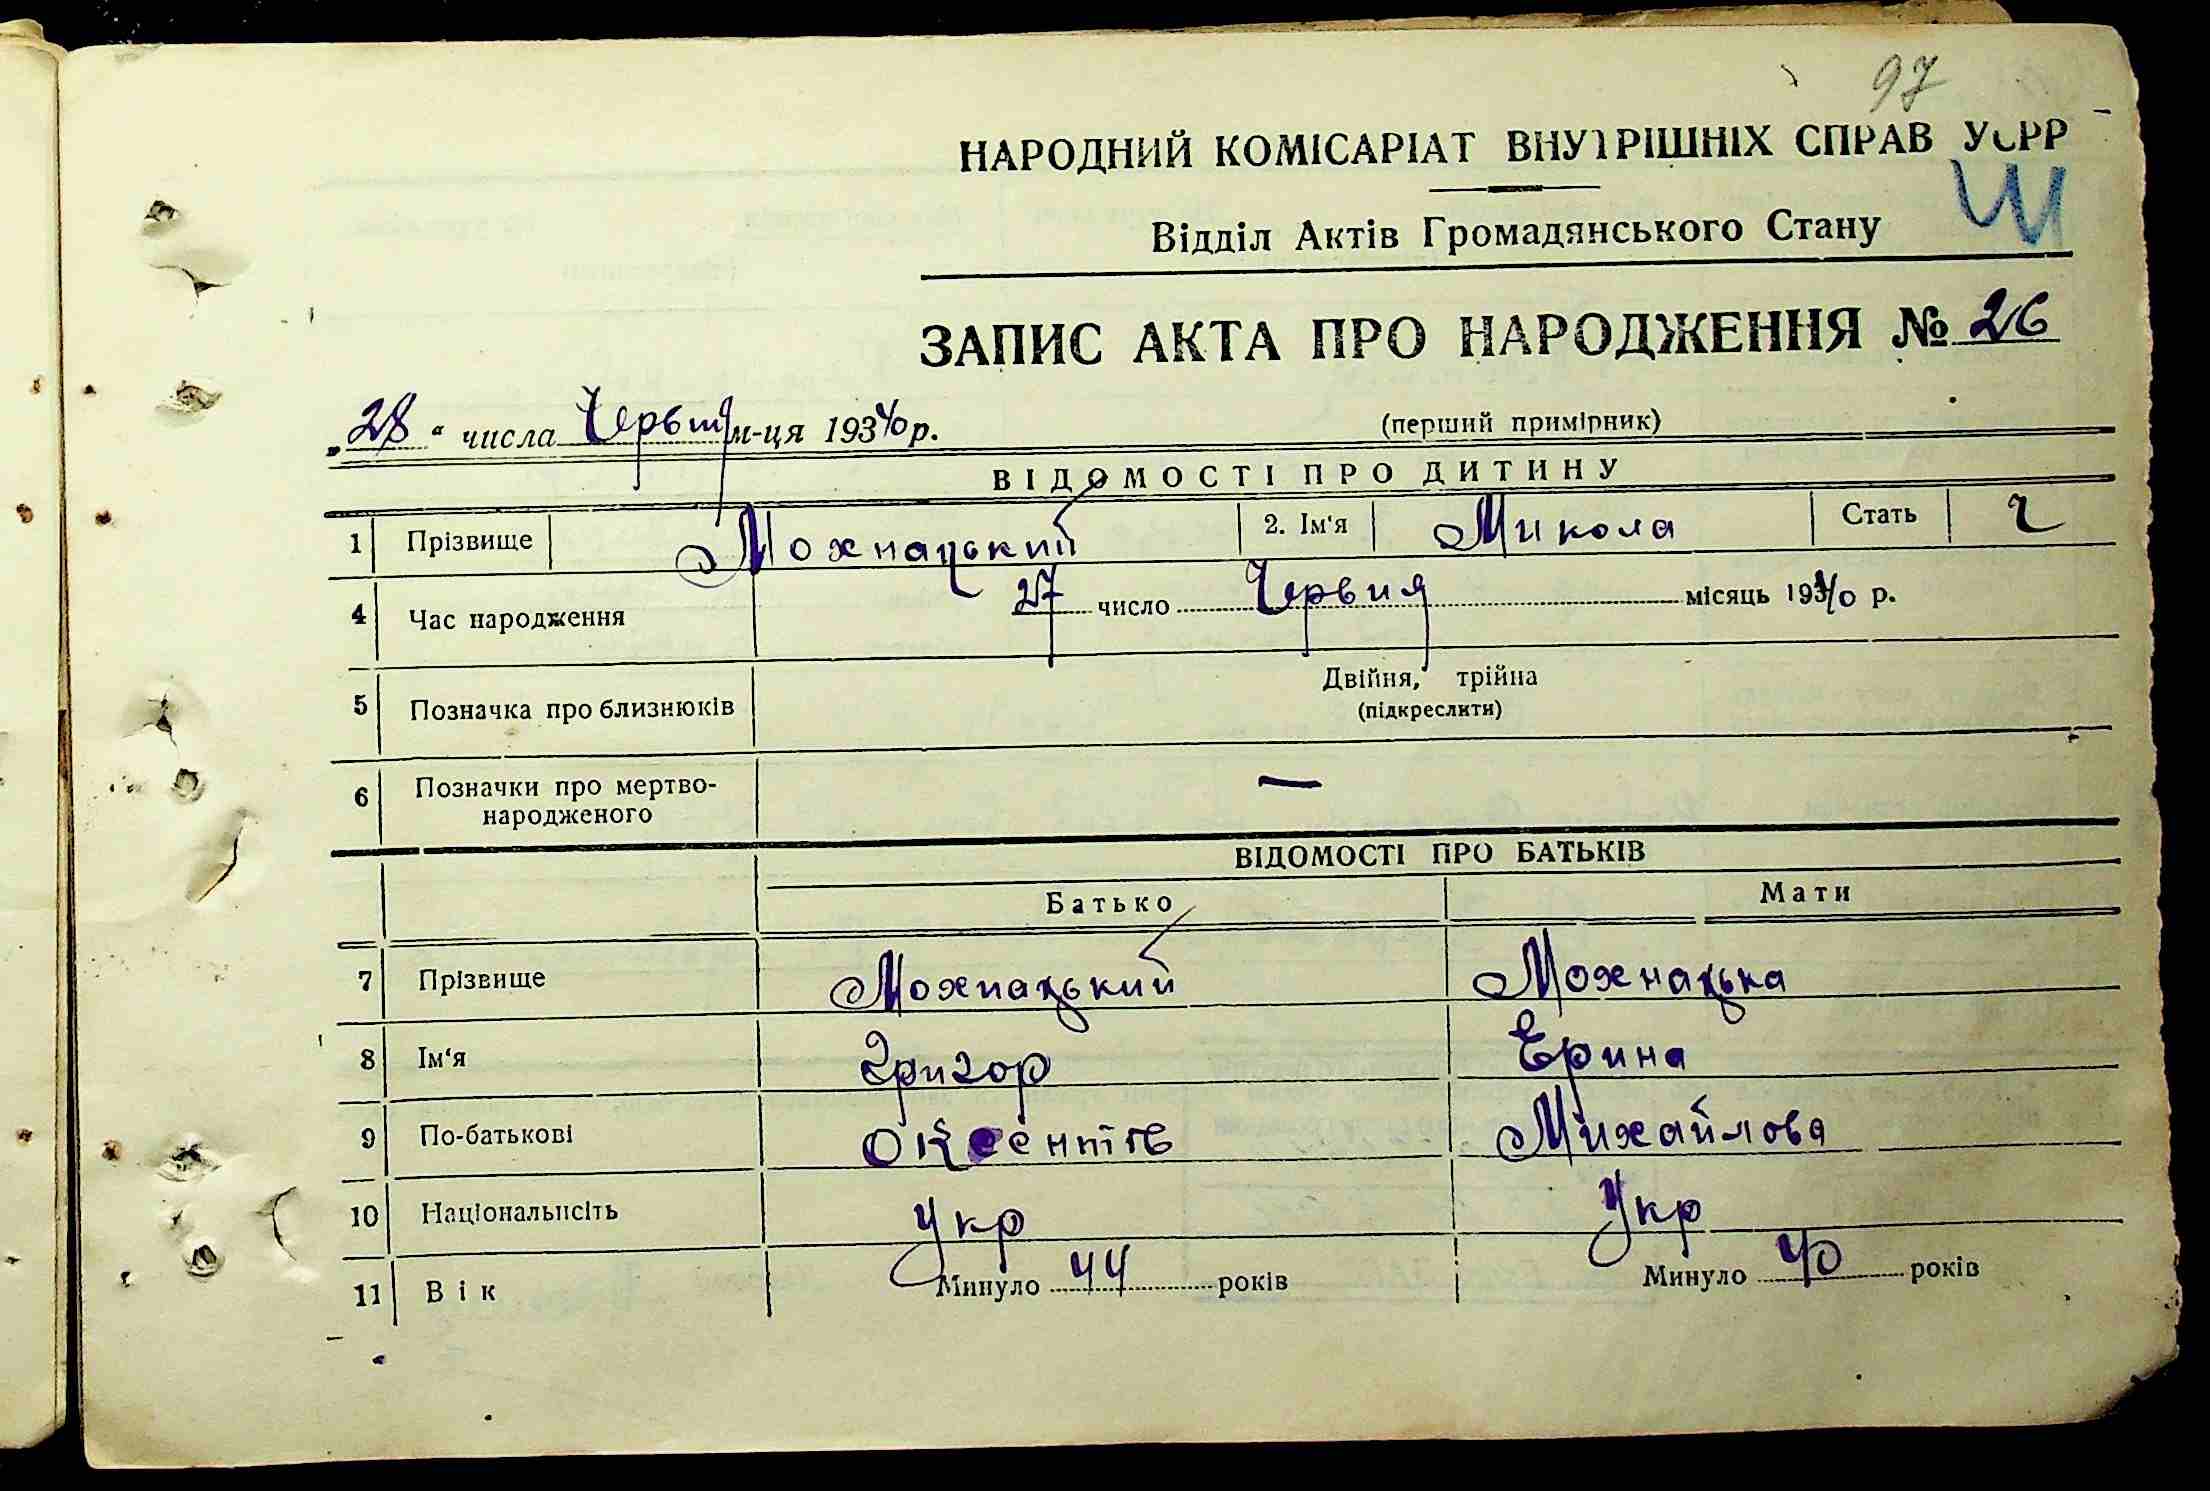 97
НАРОДНИЙ КОМІСАРІАТ ВНУТРІШНІХ СПРАВ УСРР
Відділ Актів Громадянського Стану
ЗАПИС АКТА ПРО НАРОДЖЕННЯ № 26
„28“ числа Червня м-ця 1940 р. (перший примірник)
ВІДОМОСТІ ПРО ДИТИНУ
1 Прізвище Мохнацький 2. Ім‘я Микола Стать Ч
4 Час народження 27 число Червня місяць 1940 р.
5 Позначка про близнюків Двійня, трійна
(підкреслити)
6 Позначки про мертво-
народженого —
ВІДОМОСТІ ПРО БАТЬКІВ
Батько Мати
7 Прізвище Мохнацький Мохнацька
8 Ім‘я Григор Ерина
9 По-батькові Оксентів Михайлова
10 Національність Укр Укр
11 Вік Минуло 44 років Минуло 40 років